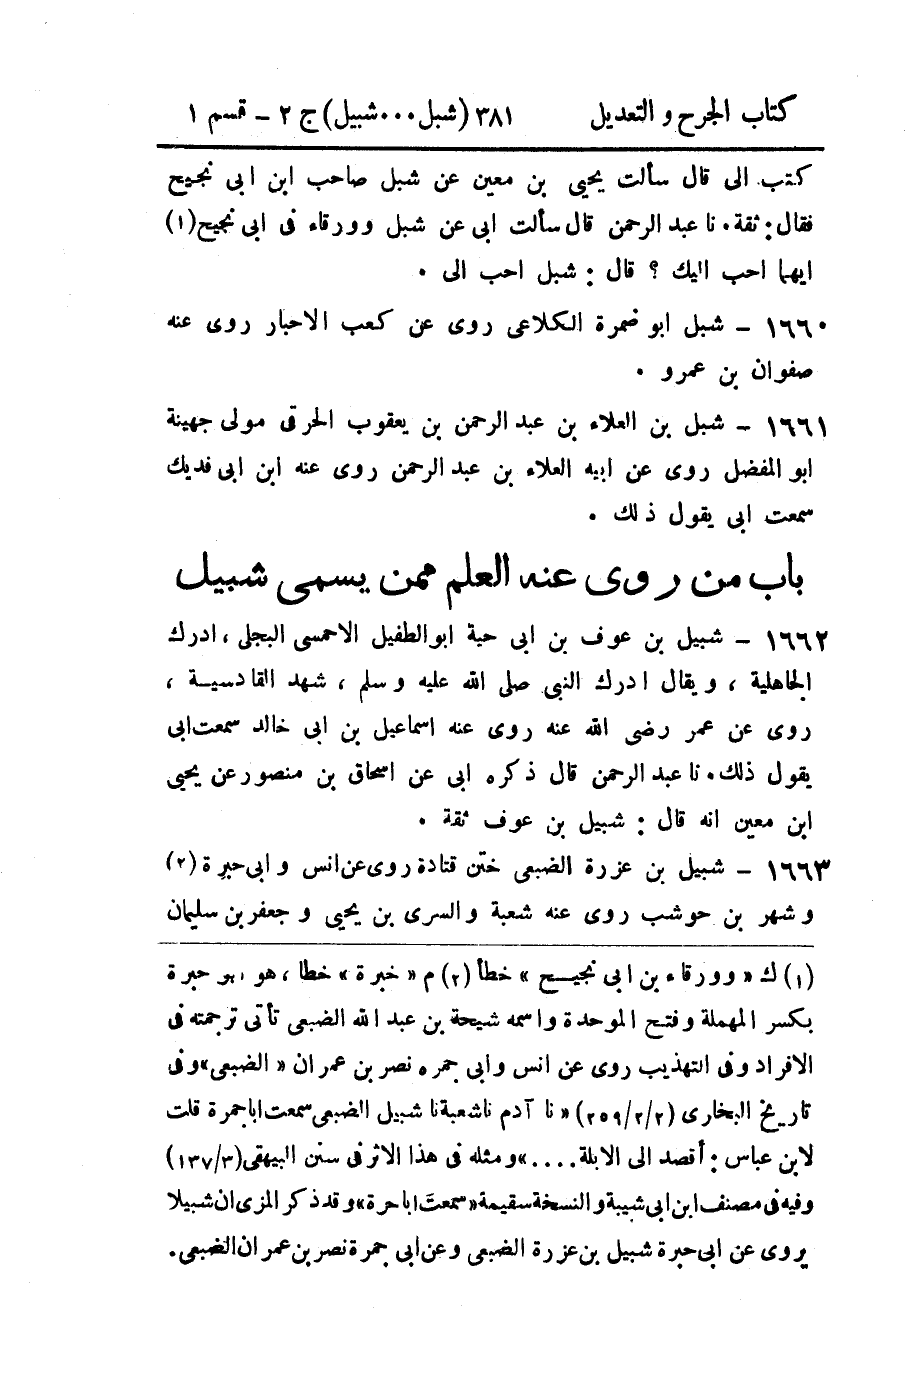 كتاب الجرح و التعديل ٣٨١ (شبل...شبيل) ج ٢ - قسم ١
كتب الى قال سألت يحيى بن معين عن شبل صاحب ابن ابى نجيح
فقال: ثقة. نا عبد الرحمن قال سألت ابى عن شبل وورقاء فى ابى نجيح (١)
ايهما احب اليك ؟ قال : شبل احب الى .
١٦٦٠ - شبل ابو ضمرة الكلاعى روى عن كعب الاحبار روى عنه
صفوان بن عمرو .
١٦٦١ - شبل بن العلاء بن عبد الرحمن بن يعقوب الحرقى مولى جهينة
ابو المفضل روى عن ابيه العلاء بن عبد الرحمن روى عنه ابن ابى فديك
سمعت ابى يقول ذلك .
باب من روى عنه العلم ممن يسمى شبيل
١٦٦٢ - شبيل بن عوف بن ابى حية ابو الطفيل الاحمسى البجلى ، ادرك
الجاهلية ، و يقال ادرك النبى صلى الله عليه و سلم ، شهد القادسية ،
روى عن عمر رضى الله عنه روى عنه اسماعيل بن ابى خالد سمعت ابى
يقول ذلك . نا عبد الرحمن قال ذكره ابى عن اسحاق بن منصور عن يحيى
ابن معين انه قال : شبيل بن عوف ثقة .
١٦٦٣ - شبيل بن عزرة الضبعى ختن قتادة روى عن انس و ابى حبرة (٢)
و شهر بن حوشب روى عنه شعبة والسرى بن يحيى و جعفر بن سليمان
(١) ك « وورقاء بن ابى نجيح » خطأ (٢) م « خبرة » خطا ، هو ابو حبرة
بكسر المهملة وفتح الموحدة واسمه شيحة بن عبد الله الضبعى تأتى ترجمته فى
الافراد وفى التهذيب روى عن انس وابى جمره نصر بن عمران « الضبعى » وفى
تاريخ البخارى (٢/٢/٢٥٩) « نا آدم نا شعبة نا شبيل الضبعى سمعت ابا جمرة قلت
لابن عباس : أقصد الى الابلة .... » ومثله فى هذا الاثر فى سنن البيهقى (٣/١٣٧)
وفيه فى مصنف ابن ابى شيبة والنسخة سقيمة « سمعت ابا حرة » وقد ذكر المزى ان شبيلا
يروى عن ابى حبرة شبيل بن عزرة الضبعى وعن ابى جمرة نصر بن عمران الضبعى .